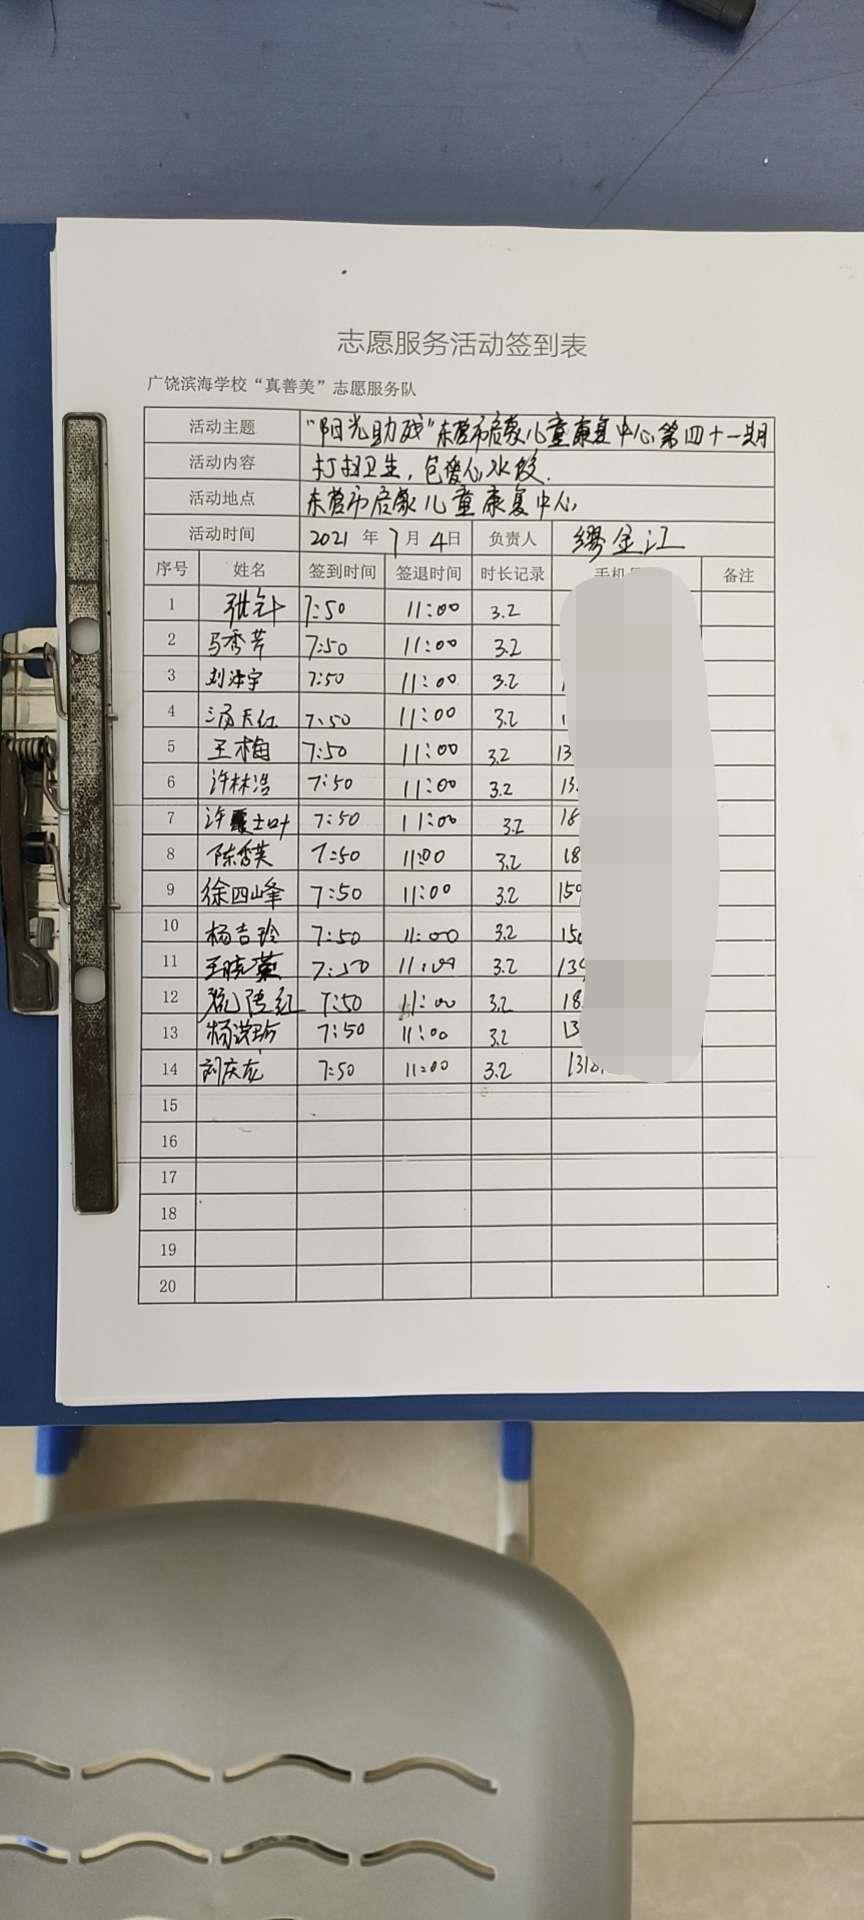 志愿服务活动签到表
广饶滨海学校“真善美”志愿服务队
活动主题 “阳光助残”东营市启蒙儿童康复中心第四十一期
活动内容 打扫卫生，包爱心水饺.
活动地点 东营市启蒙儿童康复中心
活动时间 2021年7月4日 负责人 缪金江
序号 姓名 签到时间 签退时间 时长记录 手机 备注
1 张针 7:50 11:00 3.2
2 马秀芳 7:50 11:00 3.2
3 刘泽宇 7:50 11:00 3.2
4 7:50 11:00 3.2
5 王梅 7:50 11:00 3.2 13
6 许林浩 7:50 11:00 3.2 13
7 许 7:50 11:00 3.2 18
8 陈秀英 7:50 11:00 3.2 18
9 徐四峰 7:50 11:00 3.2 150
10 杨吉玲 7:50 11:00 3.2 150
11 王晓燕 7:50 11:00 3.2 139
12 7:50 11:00 3.2 18
13 杨 7:50 11:00 3.2 13
14 刘庆龙 7:50 11:00 3.2 1318
15
16
17
18
19
20